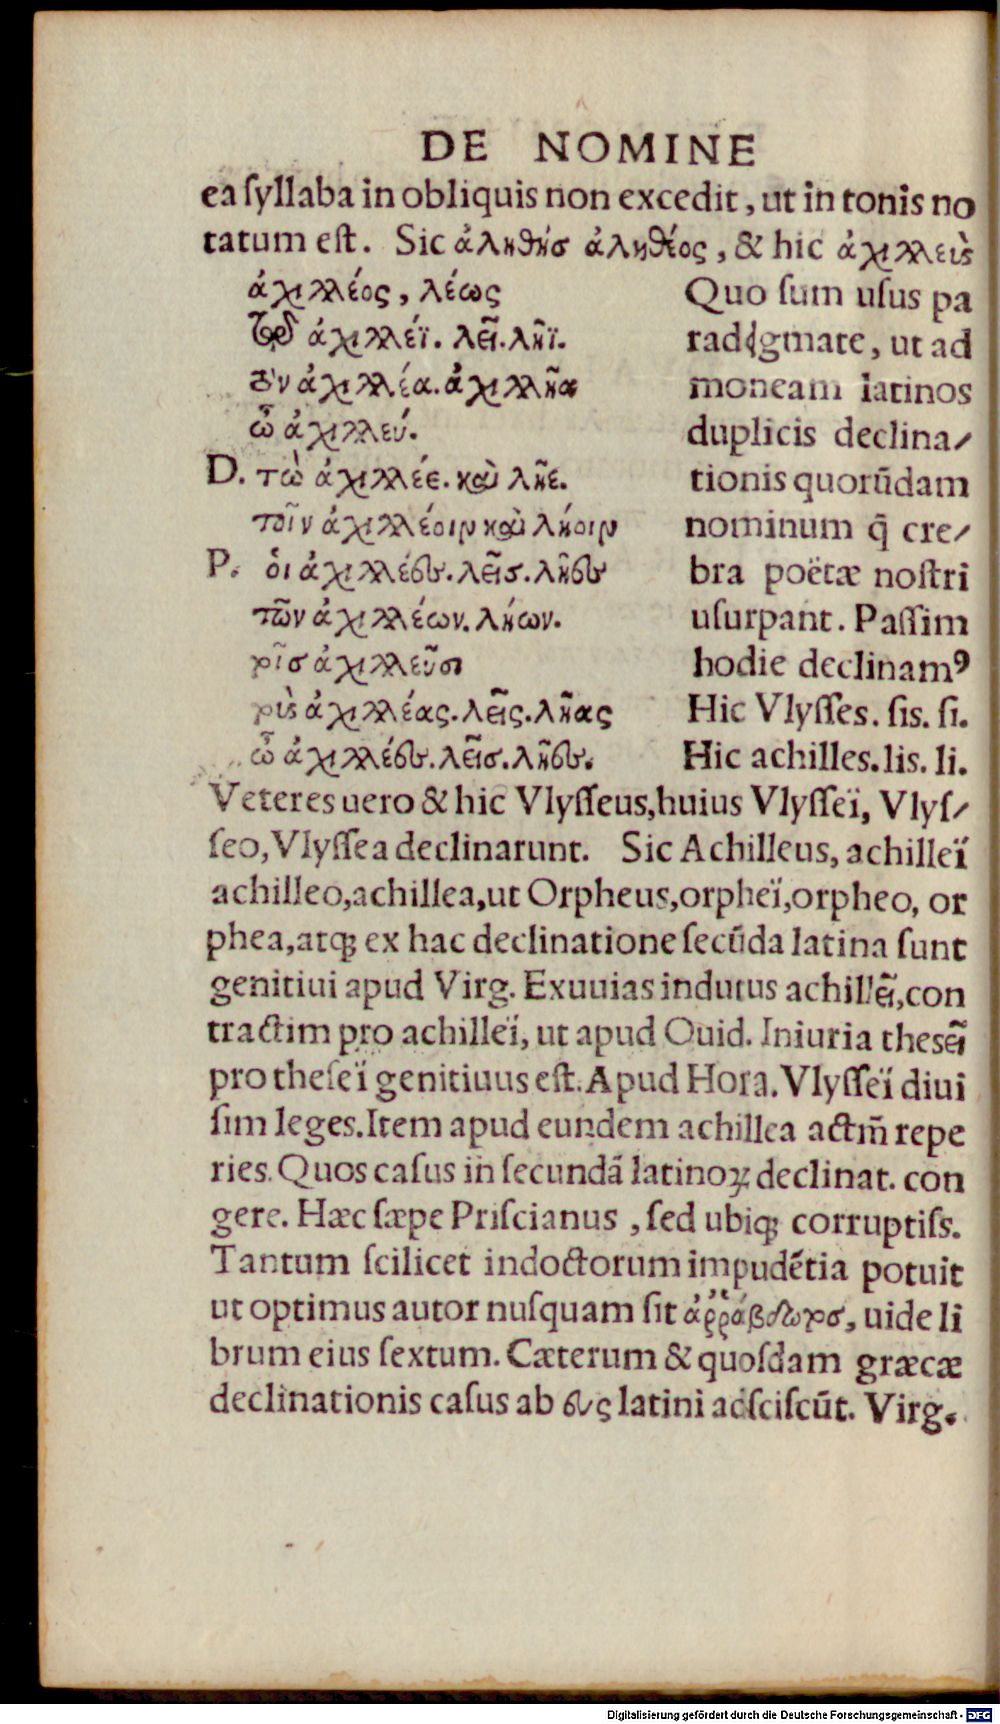 DE NOMINE
ea ſyllaba in obliquis non excedit, ut in tonis no
tatum eſt. Sic ἀληθήσ ἀληθέος, & hic ἀχιλλεὺς
ἀχιλλέος, λέως
τῷ ἀχιλλέϊ. λεῖ. λῆϊ.
τὸν ἀχιλλέα. ἀχιλλῆα
ὦ ἀχιλλεύ.
D. τὼ ἀχιλλέε. καὶ λῆε.
τοῖν ἀχιλλέοιν καὶ λήοιν
P. ὁι ἀχιλλέες. λεῖσ. λῆες
τῶν ἀχιλλέων. λήων.
τοῖσ ἀχιλλεῦσι
τοὺς ἀχιλλέας. λεῖς. λῆας
ὦ ἀχιλλέες. λεῖσ. λῆες.
Quo ſum uſus pa
radigmate, ut ad
moneam latinos
duplicis declina⸗
tionis quorūdam
nominum q̄ cre⸗
bra poëtæ noſtri
uſurpant. Paſſim
hodie declinamꝰ
Hic Vlyſſes. ſis. ſi.
Hic achilles. lis. li.
Veteres uero & hic Vlyſſeus, huius Vlyſſeï, Vlyſ⸗
ſeo, Vlyſſea declinarunt. Sic Achilleus, achilleï
achilleo, achillea, ut Orpheus, orpheï, orpheo, or
phea, atq; ex hac declinatione ſecūda latina ſunt
genitiui apud Virg. Exuuias indutus achillei͂, con
tractim pro achilleï, ut apud Ouid. Iniuria thesei͂
pro theſeï genitiuus eſt. Apud Hora. Vlyſſeï diui
ſim leges. Item apud eundem achillea actm̄ repe
ries. Quos caſus in ſecundā latinoꝝ declinat. con
gere. Hæc ſæpe Priſcianus, ſed ubiq; corruptiſs.
Tantum ſcilicet indoctorum impudētia potuit
ut optimus autor nuſquam ſit ἀῤῥάβδωτοσ, uide li
brum eius ſextum. Cæterum & quoſdam græcæ
declinationis caſus ab ευς latini adſciſcūt. Virg.
Digitalisierung gefördert durch die Deutsche Forschungsgemeinschaft - DFG